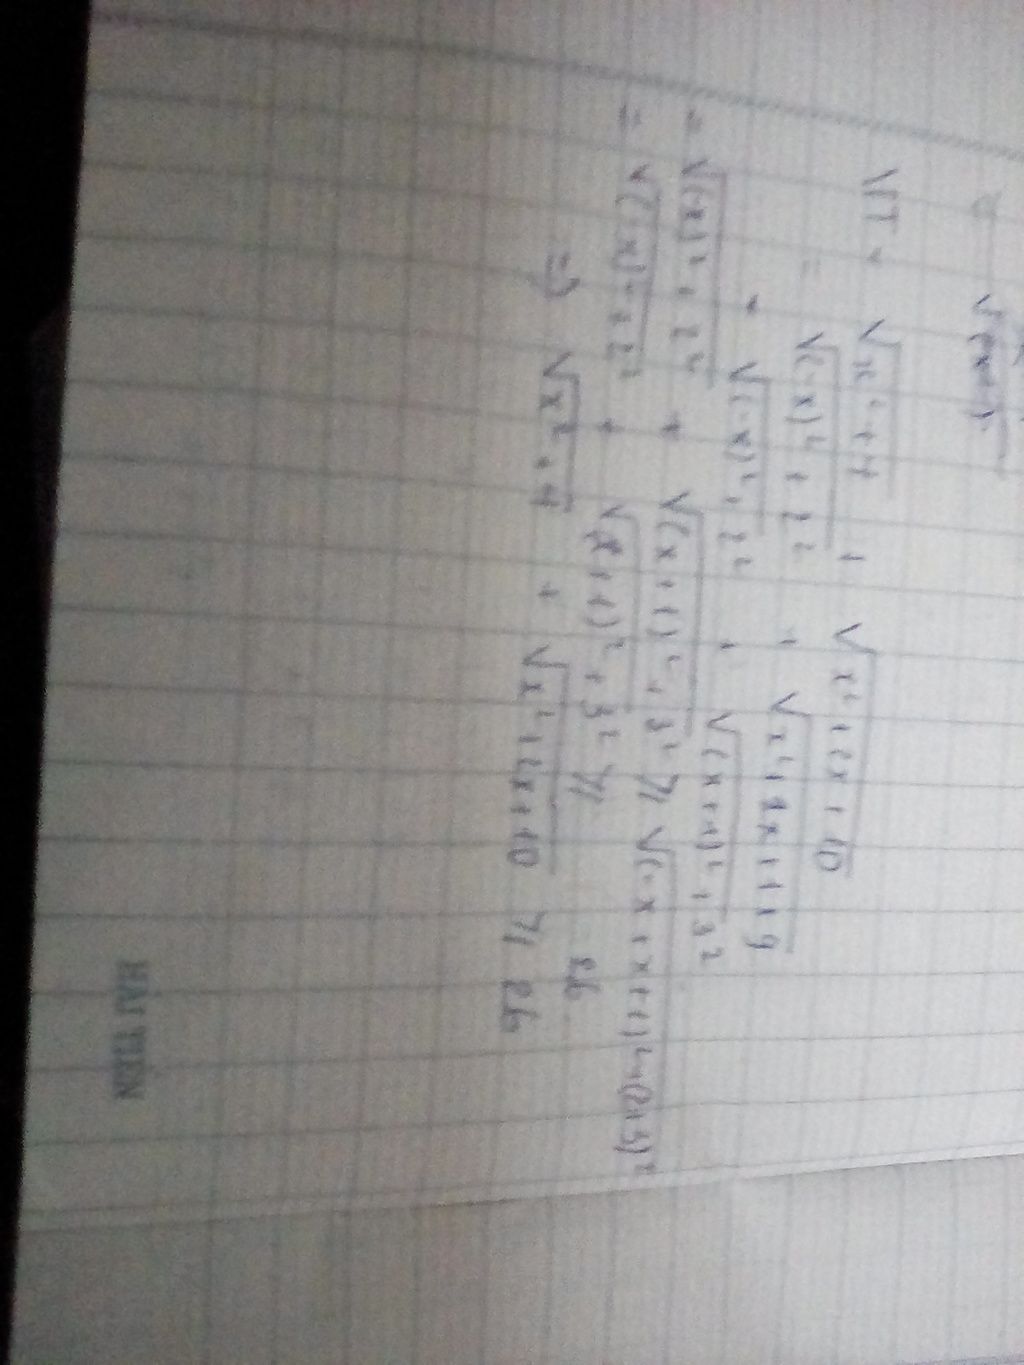 √(x+1)
VT = √x²+4 + √x²+2x+10
= √(-x)²+2² + √x²+2x+1+9
= √(-x)²+2² + √(x+1)²+3²
= √(-x)²+2² + √(x+1)²+3² ≥ √(-x+x+1)²+(2+3)²
= √(-x)²+2² + √(x+1)²+3² ≥ 26
=> √x²+4 + √x²+2x+10 ≥ 26
HẢI TIẾN